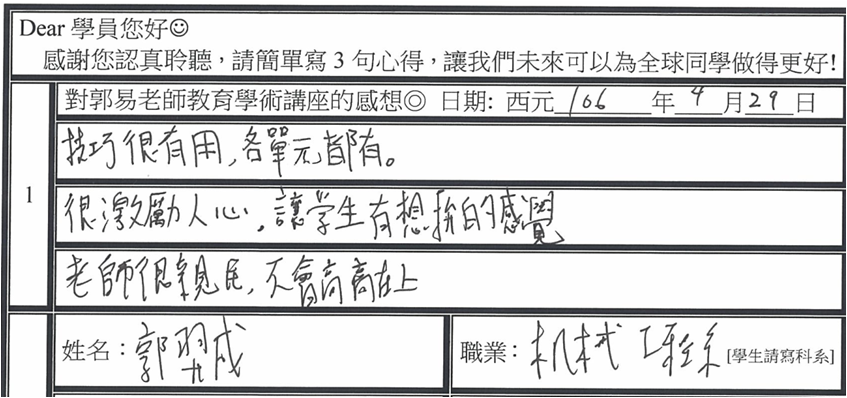 Dear 學員您好☺
感謝您認真聆聽，請簡單寫 3 句心得，讓我們未來可以為全球同學做得更好!
對郭易老師教育學術講座的感想◎ 日期: 西元 106 年 4 月 29 日
1
技巧很有用，各單元都有。
很激勵人心，讓學生有想拚的感覺
老師很親民，不會高高在上
姓名：郭 成
職業：机械工程系 [學生請寫科系]